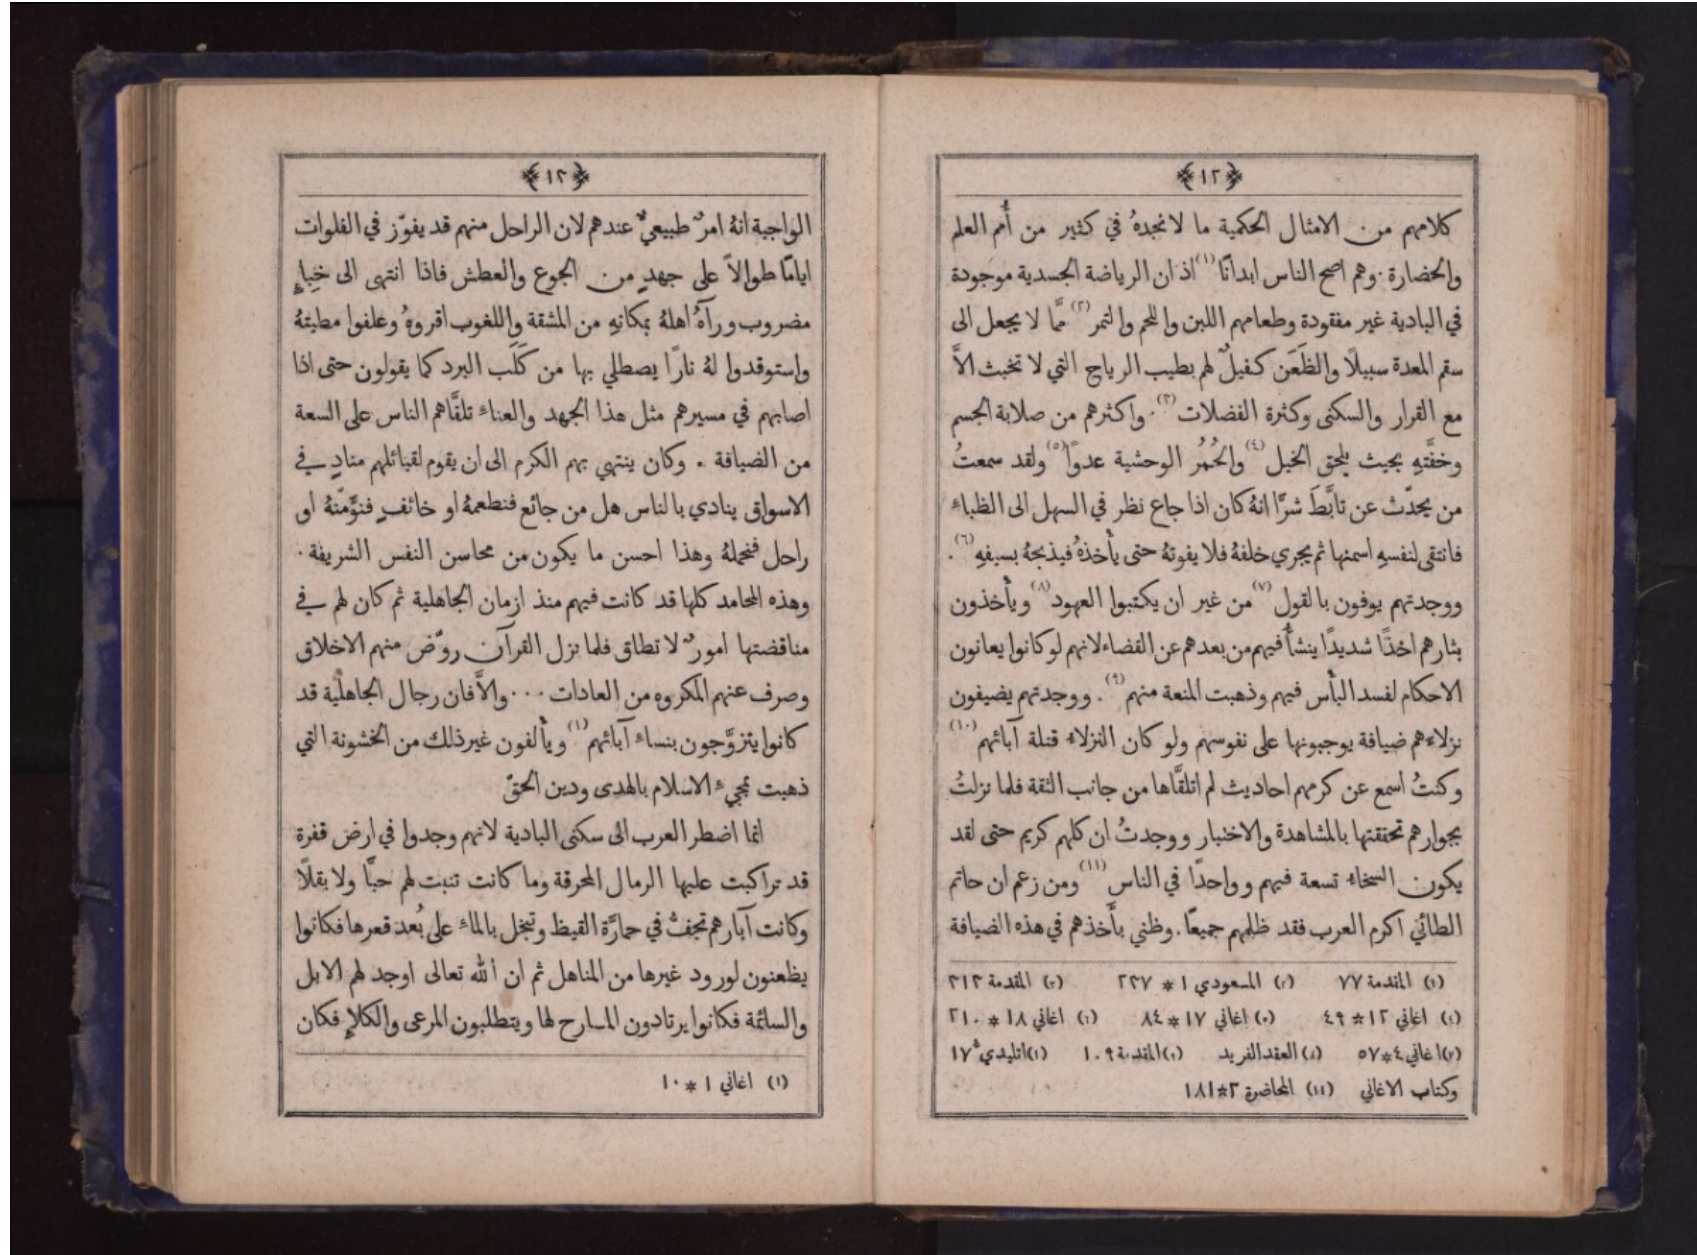 ﴿١٢﴾
كلامهم من الامثال الحكمية ما لا نجدهُ في كثير من أُمم العلم
والحضارة. وهم اصح الناس ابدانًا (١) اذ ان الرياضة الجسدية موجودة
في البادية غير مفقودة وطعامهم اللبن واللحم والتمر (٢) ممَّا لا يجعل الى
سقم المعدة سبيلًا والظَعَن كفيلٌ لهم بطيب الرياح التي لا تخبث الاَّ
مع القرار والسكنى وكثرة الفضلات (٣). واكثرهم من صلابة الجسم
وخفَّتهِ بحيث يلحق الخيل (٤) والحُمُر الوحشية عدوًا (٥) ولقد سمعتُ
من يحدّث عن تابَّطَ شرًّا انهُ كان اذا جاع نظر في السهل الى الظباء
فانتقى لنفسهِ اسمنها ثم يجري خلفهُ فلا يفوتهُ حتى يأخذهُ فيذبحهُ بسيفهِ (٦).
ووجدتهم يوفون بالقول (٧) من غير ان يكتبوا العهود (٨) ويأخذون
بثارهم اخذًا شديدًا ينشأُ فيهم من بعدهم عن القضاء لانهم لو كانوا يعانون
الاحكام لفسد البأس فيهم وذهبت المنعة منهم (٩). ووجدتهم يضيفون
نزلاءهم ضيافة يوجبونها على نفوسهم ولو كان النزلاء قتلة آبائهم (١٠)
وكنتُ اسمع عن كرمهم احاديث لم اتلقَّاها من جانب الثقة فلما نزلتُ
بجوارهم تحققتها بالمشاهدة والاختبار ووجدتُ ان كلهم كريم حتى لقد
يكون السخاء تسعة فيهم وواحدًا في الناس (١١) ومن زعم ان حاتم
الطائي اكرم العرب فقد ظلمهم جميعًا. وظني بأخذهم في هذه الضيافة
(١) المقدمة ٧٧ (٢) المسعودي ١ * ٢٣٧ (٣) المقدمة ٣١٣
(٤) اغاني ١٢ * ٤٩ (٥) اغاني ١٧ * ٨٤ (٦) اغاني ١٨ * ٢١٠
(٧) اغاني ٤ * ٥٧ (٨) العقد الفريد (٩) المقدمة ١٠٩ (١٠) اتليدي ١٧٥
وكتاب الاغاني (١١) المحاضرة ٣ * ١٨١
﴿١٣﴾
الواجبة انهُ امرٌ طبيعيٌّ عندهم لان الراحل منهم قد يفوّز في الفلوات
ايامًا طوالاً على جهدٍ من الجوع والعطش فاذا انتهى الى خِباءٍ
مضروب ورآهُ اهلهُ بمكانهِ من المشقة واللغوب أقروهُ وعلفوا مطيتهُ
واستوقدوا لهُ نارًا يصطلي بها من كَلَب البرد كما يقولون حتى اذا
اصابهم في مسيرهم مثل هذا الجهد والعناء تلقَّاهم الناس على السعة
من الضيافة. وكان ينتهي بهم الكرم الى ان يقوم لقبائلهم منادٍ في
الاسواق ينادي بالناس هل من جائع فنطعمهُ او خائفٍ فنؤمّنهُ او
راحل فنحملهُ وهذا احسن ما يكون من محاسن النفس الشريفة.
وهذه المحامد كلها قد كانت فيهم منذ ازمان الجاهلية ثم كان لهم في
مناقضتها امورٌ لا تطاق فلما نزل القرآن روّض منهم الاخلاق
وصرف عنهم المكروه من العادات ... والاَّ فان رجال الجاهليَّة قد
كانوا يتزوَّجون بنساء آبائهم (١) ويألفون غير ذلك من الخشونة التي
ذهبت بمجيء الاسلام بالهدى ودين الحقّ
انما اضطر العرب الى سكنى البادية لانهم وجدوا في ارض قفرة
قد تراكبت عليها الرمال المحرقة وما كانت تنبت لهم حبًّا ولا بقلًا
وكانت آبارهم تجفُّ في حمارَّة القيظ وتبخل بالماء على بُعد قعرها فكانوا
يظعنون لورود غيرها من المناهل ثم ان الله تعالى اوجد لهم الابل
والسائمة فكانوا يرتادون المسارح لها ويتطلبون المرعى والكلاءِ فكان
(١) اغاني ١ * ١٠